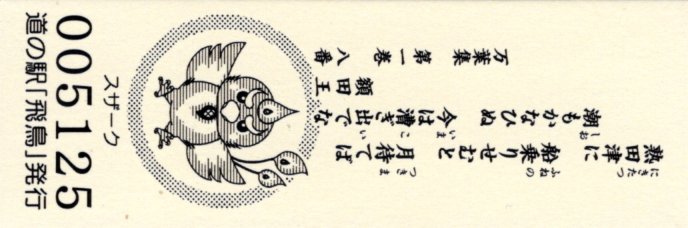 にきたつ ふねの つきま
熟田津に 船乗りせむと 月待てば
しお いま こ い
潮もかなひぬ 今は漕ぎ出でな
額田王
万葉集 第一巻 八番
スザーク
005125
道の駅「飛鳥」発行